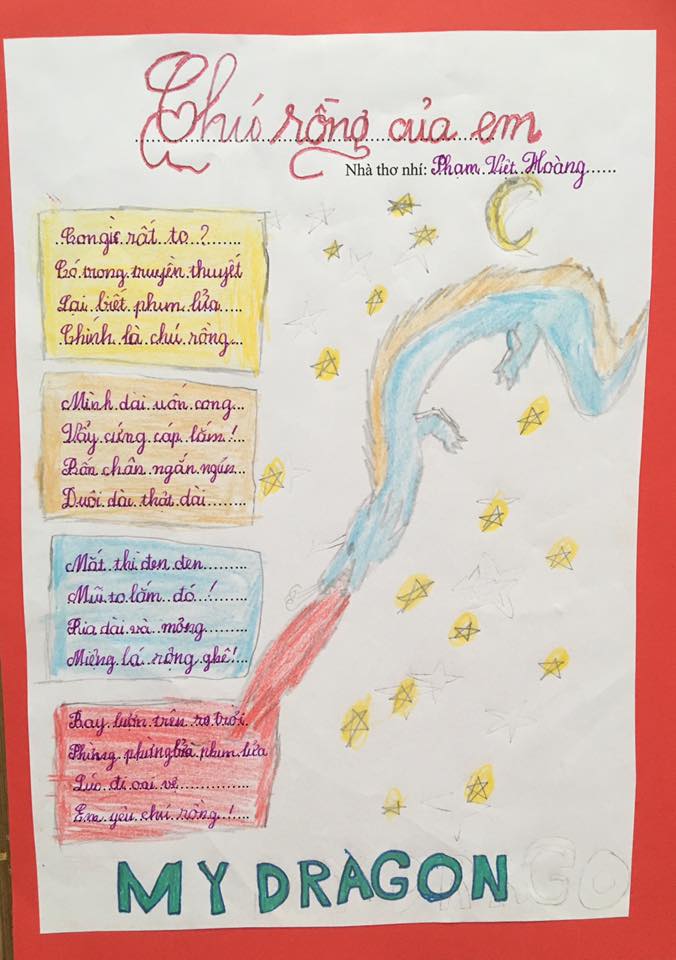 Chú rồng của em
Nhà thơ nhí: Phạm Việt Hoàng
Con gì rất to ?
Có trong truyền thuyết
Lại biết phum lửa
Chính là chú rồng
Mình dài uốn cong
Vẩy cứng cáp lắm !
Bốn chân ngắn ngủn
Đuôi dài thật dài
Mắt thì đen đen
Mũi to lắm đó !
Ria dài và mỏng
Miệng lá rộng ghê !
Bay lượn trên trời
Phừng phừng phum lửa
Lúc đi oai vệ
Em yêu chú rồng !
MY DRAGON